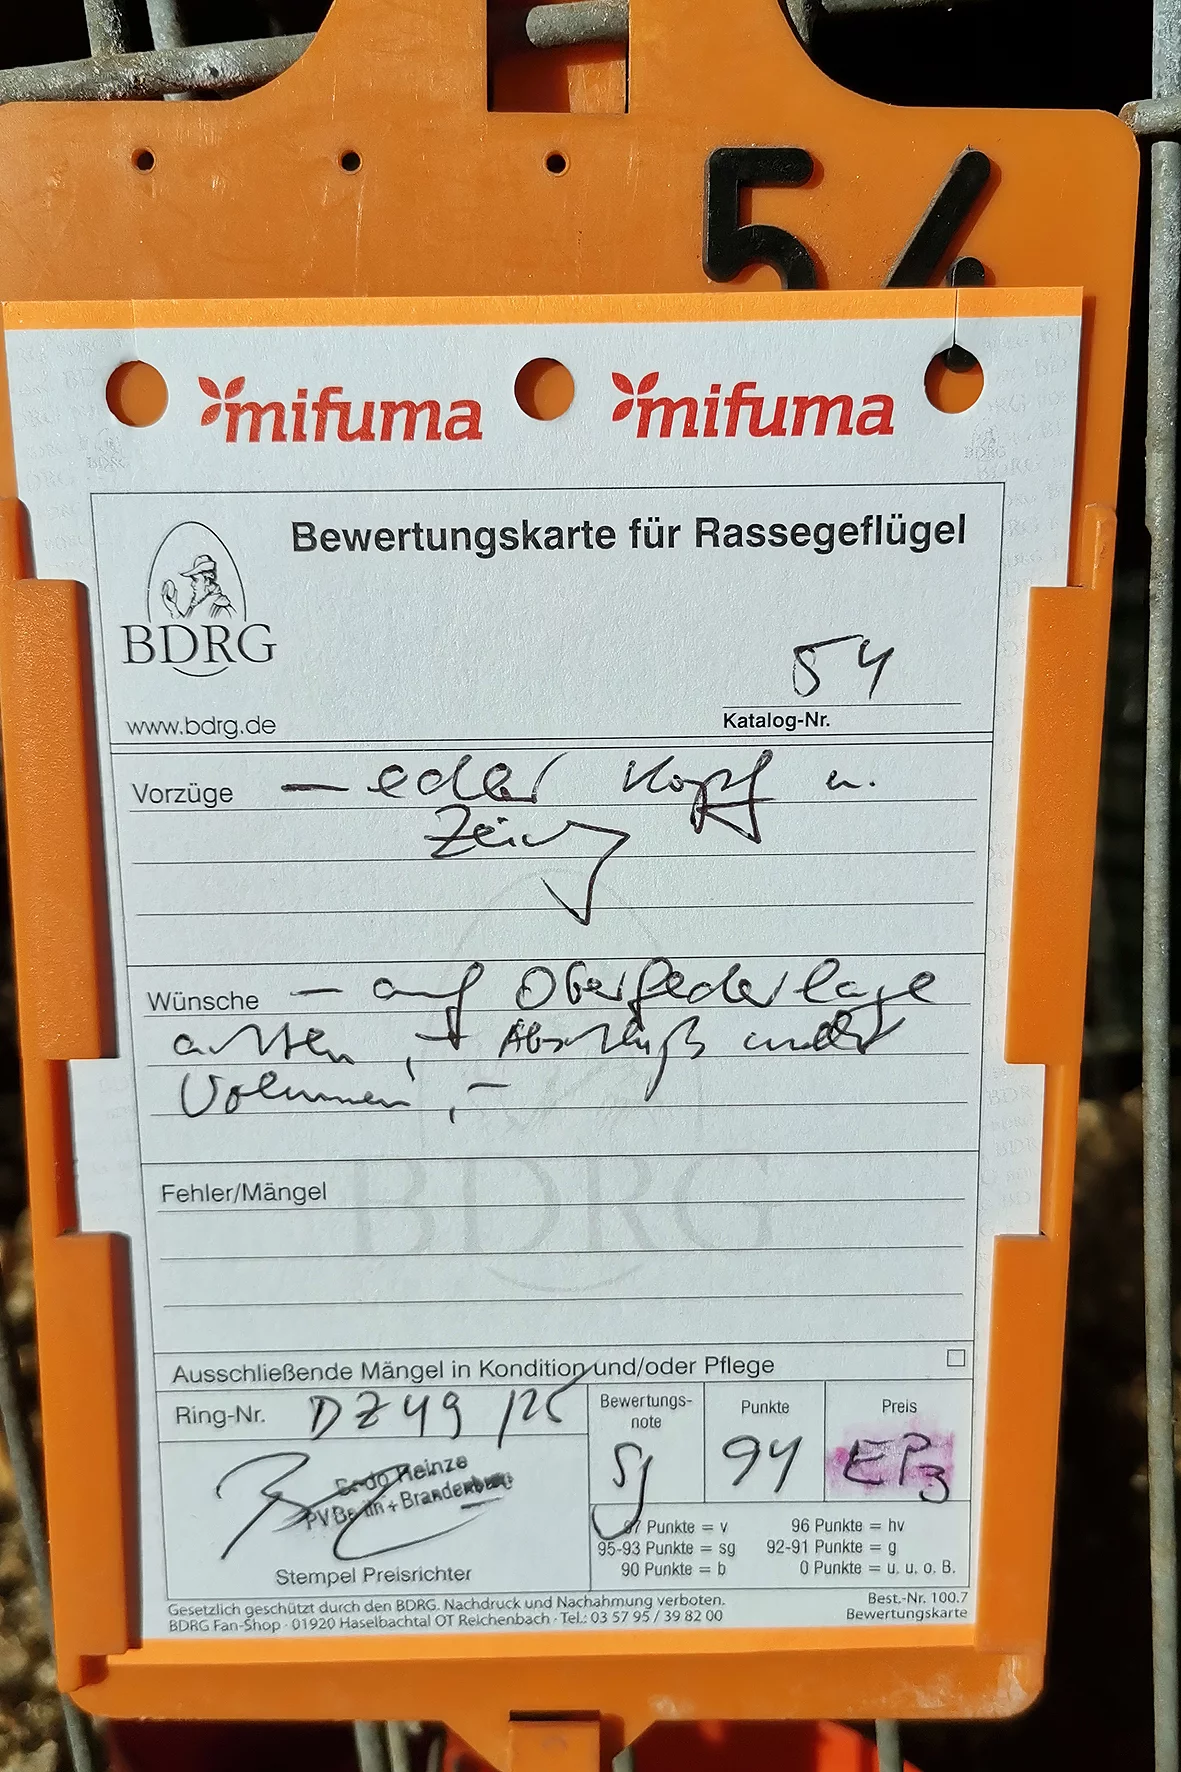 54
mifuma mifuma
Bewertungskarte für Rassegeflügel
BDRG
www.bdrg.de
54
Katalog-Nr.
Vorzüge – edler Kopf u.
Wünsche – auf Oberfederlage
achten, Abschluß
Volumen, –
BDRG
Fehler/Mängel
Ausschließende Mängel in Kondition und/oder Pflege
Ring-Nr. DZ 49 /25
Bewertungs-
note
Sg
Punkte
94
Preis
EP3
Heinze
PV Berlin + Brandenburg
Stempel Preisrichter
97 Punkte = v 96 Punkte = hv
95-93 Punkte = sg 92-91 Punkte = g
90 Punkte = b 0 Punkte = u. u. o. B.
Gesetzlich geschützt durch den BDRG. Nachdruck und Nachahmung verboten.
BDRG Fan-Shop · 01920 Haselbachtal OT Reichenbach · Tel.: 03 57 95 / 39 82 00
Best.-Nr. 100.7
Bewertungskarte